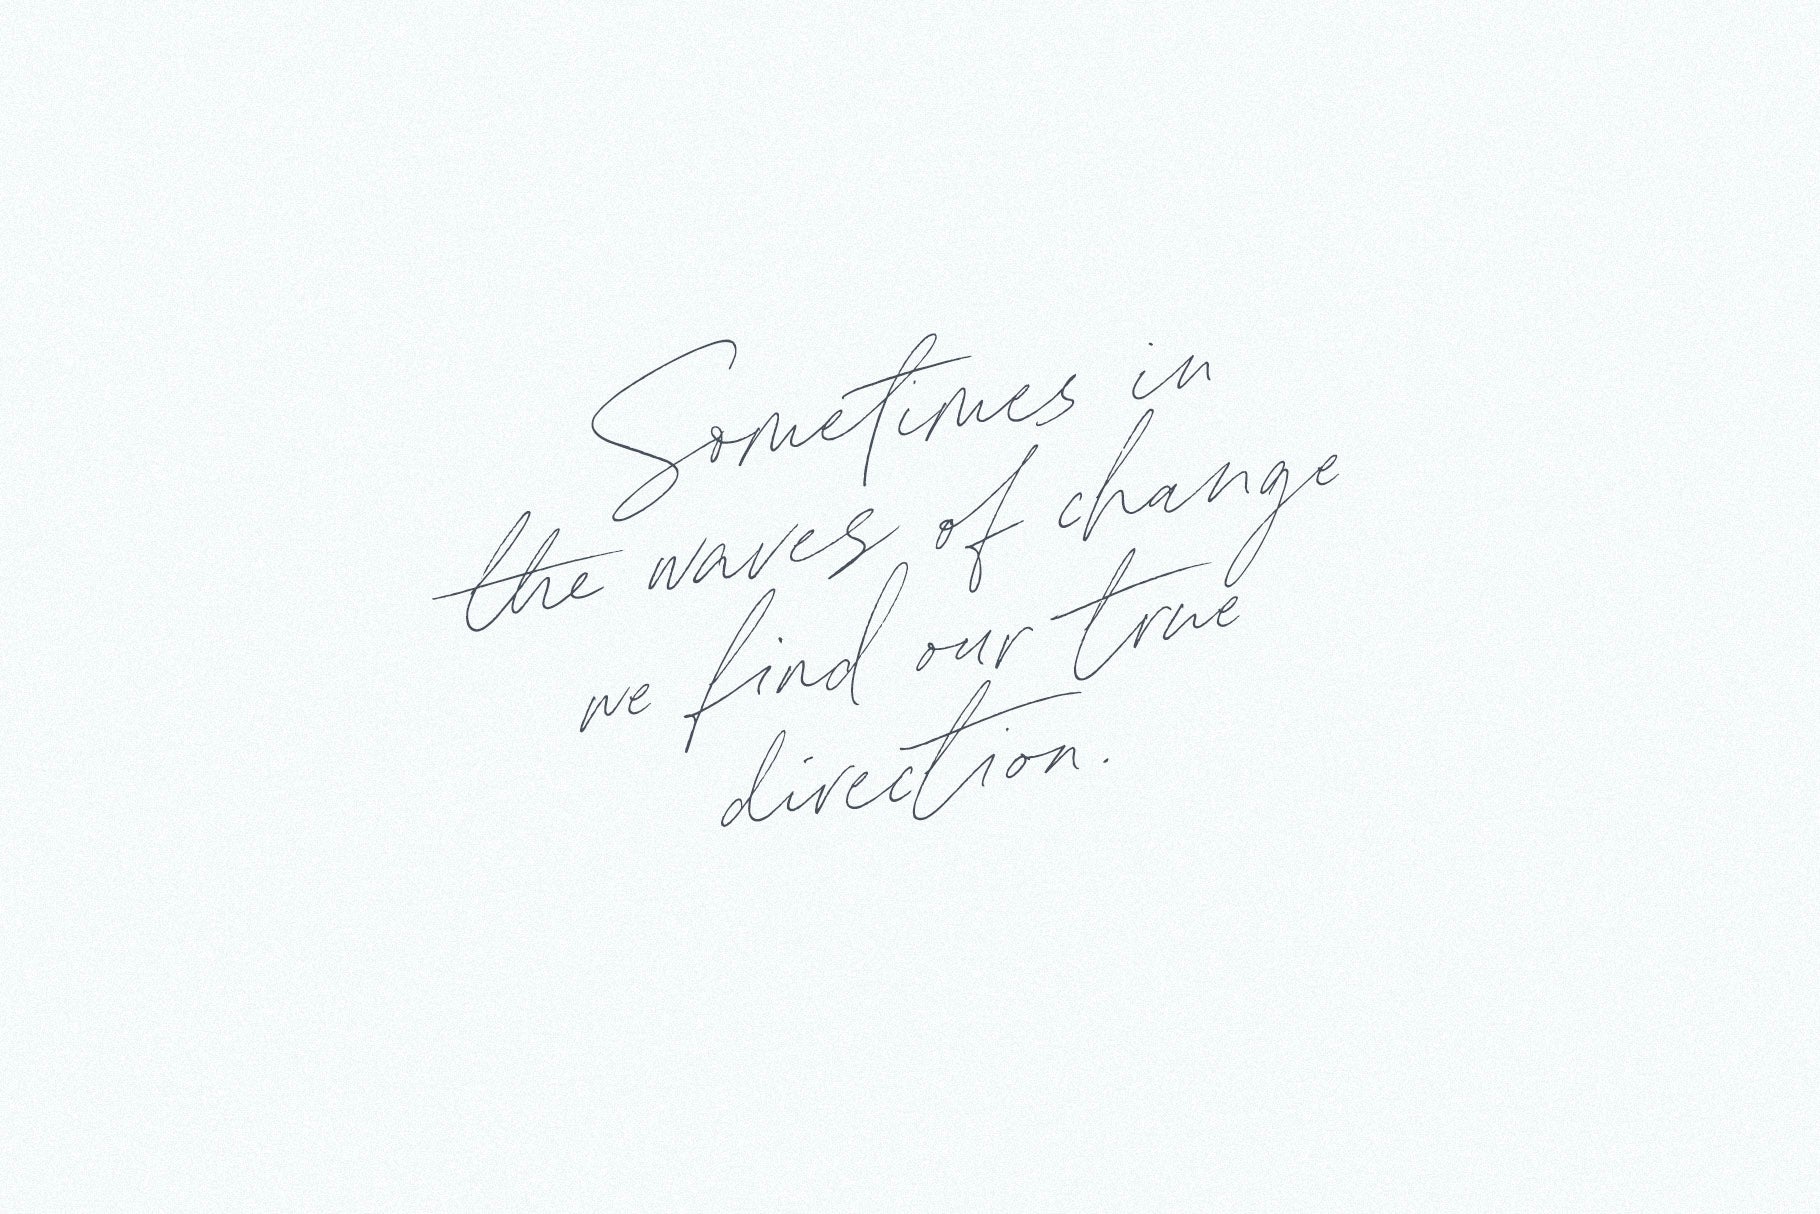 Sometimes in
the waves of change
we find our true
direction.